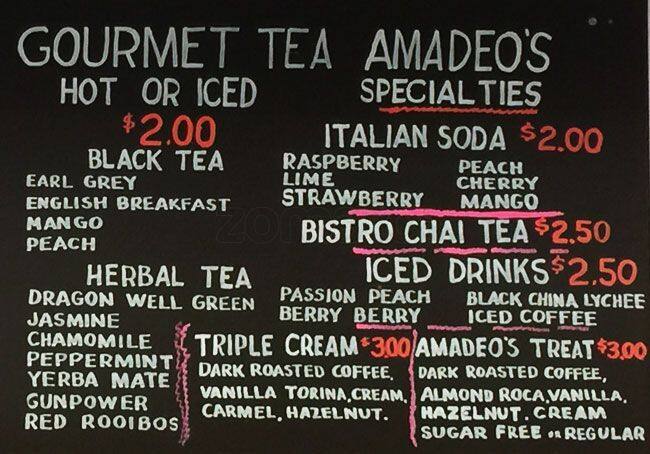 GOURMET TEA
HOT OR ICED
$2.00
BLACK TEA
EARL GREY
ENGLISH BREAKFAST
MANGO
PEACH
HERBAL TEA
DRAGON WELL GREEN
JASMINE
CHAMOMILE
PEPPERMINT
YERBA MATE
GUNPOWER
RED ROOIBOS
AMADEO'S
SPECIALTIES
ITALIAN SODA $2.00
RASPBERRY PEACH
LIME CHERRY
STRAWBERRY MANGO
BISTRO CHAI TEA $2.50
ICED DRINKS $2.50
PASSION PEACH BLACK CHINA LYCHEE
BERRY BERRY ICED COFFEE
TRIPLE CREAM $3.00
DARK ROASTED COFFEE,
VANILLA TORINA, CREAM,
CARMEL, HAZELNUT.
AMADEO'S TREAT $3.00
DARK ROASTED COFFEE,
ALMOND ROCA, VANILLA,
HAZELNUT. CREAM
SUGAR FREE OR REGULAR